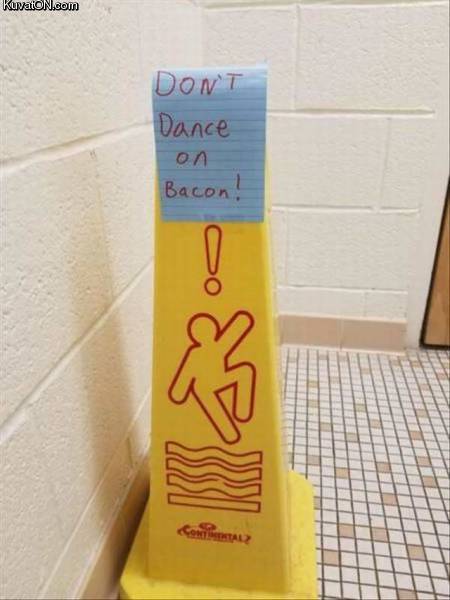 KuvatON.com
DON'T
Dance
on
Bacon!
!
CONTINENTAL